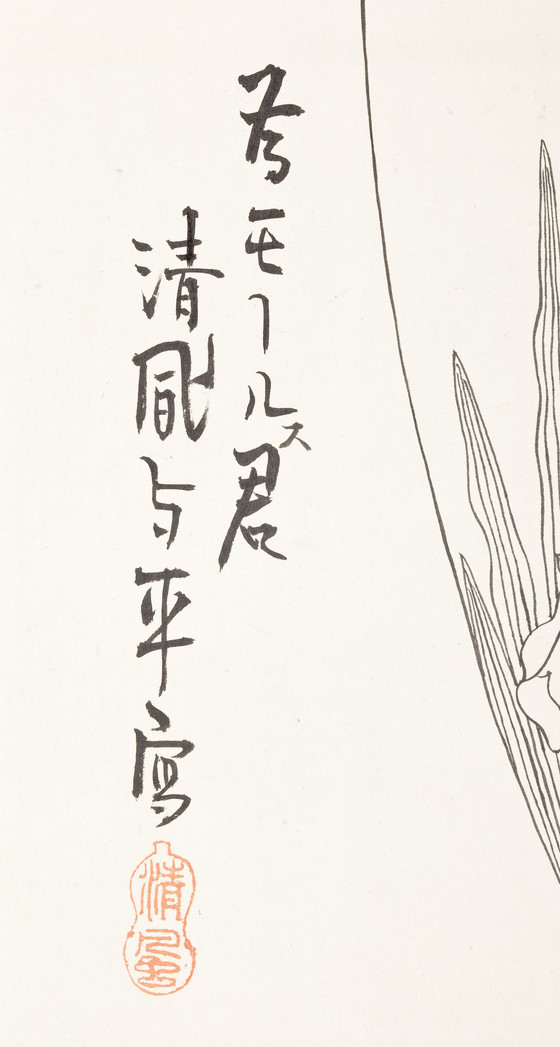 為モールス君
清風与平写
清風